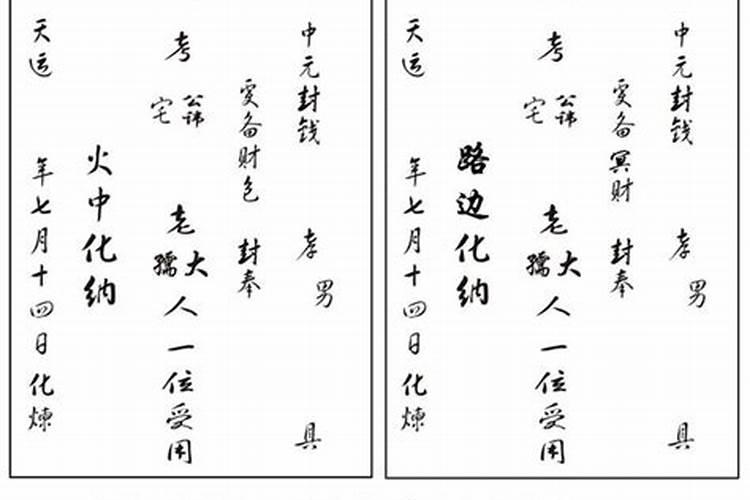 中元封钱 孝男 具
爰备财包 封奉
考 公讳 宅 老大 孺人一位受用
火中化纳
天运 年七月十四日化煉
中元封钱 孝男 具
爰备冥财 封奉
考 公讳 宅 老大 孺人一位受用
路边化纳
天运 年七月十四日化煉